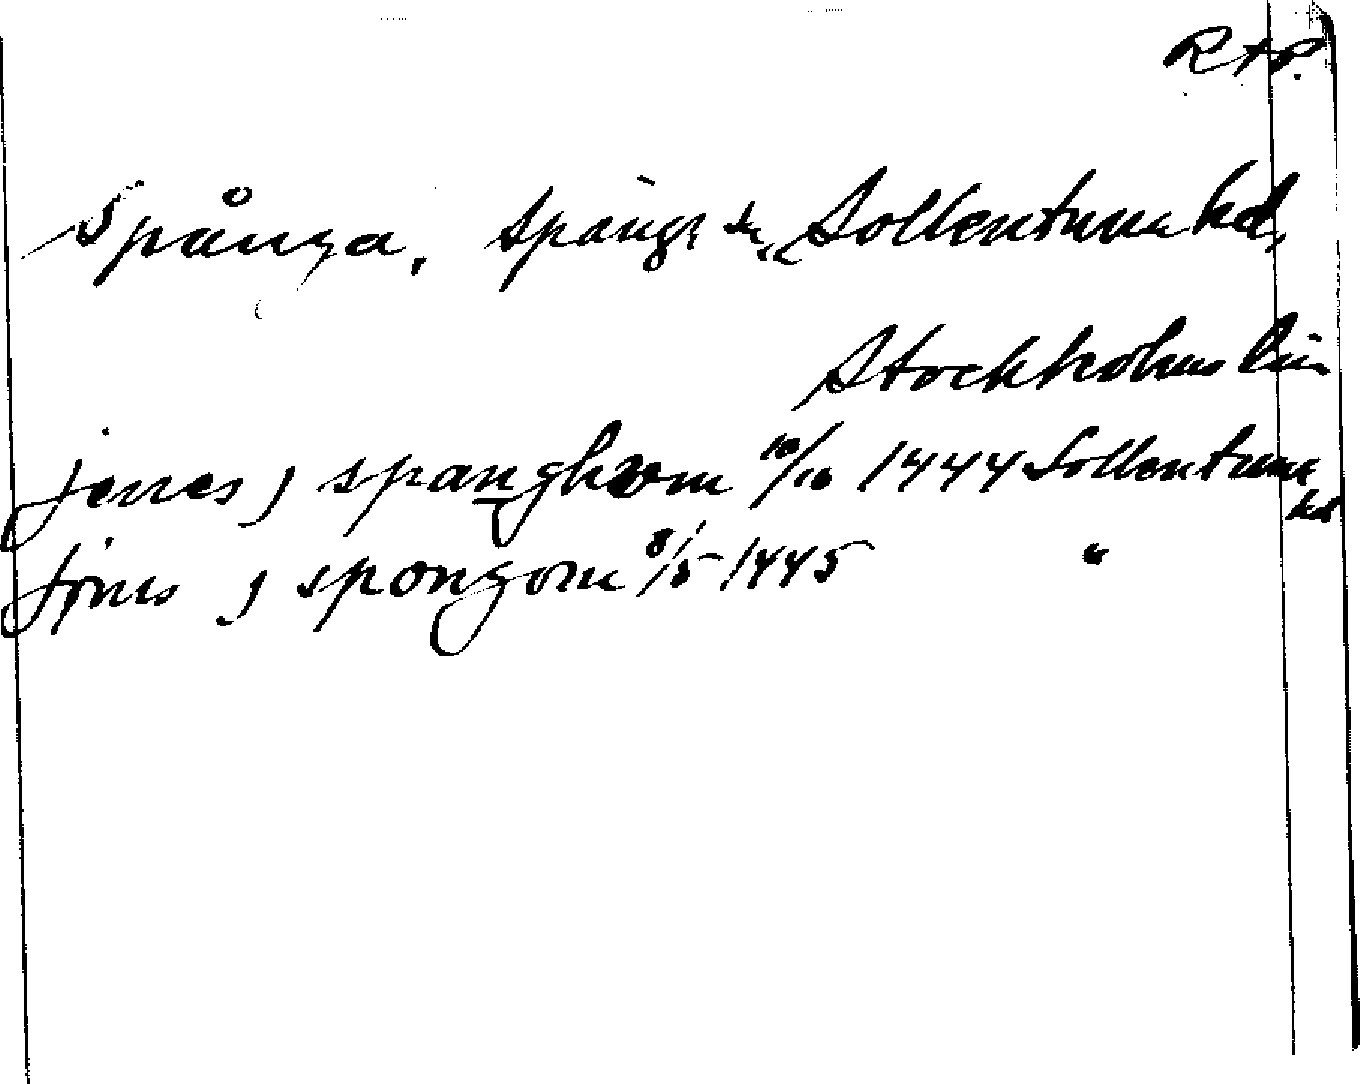 R+P.
Spånga, Spånga sn, Sollentuna hd,
Stockholms län
jenes j spanghom 10/10 1444 Sollentuna
hd
jönes j spongom 8/5 1445 "